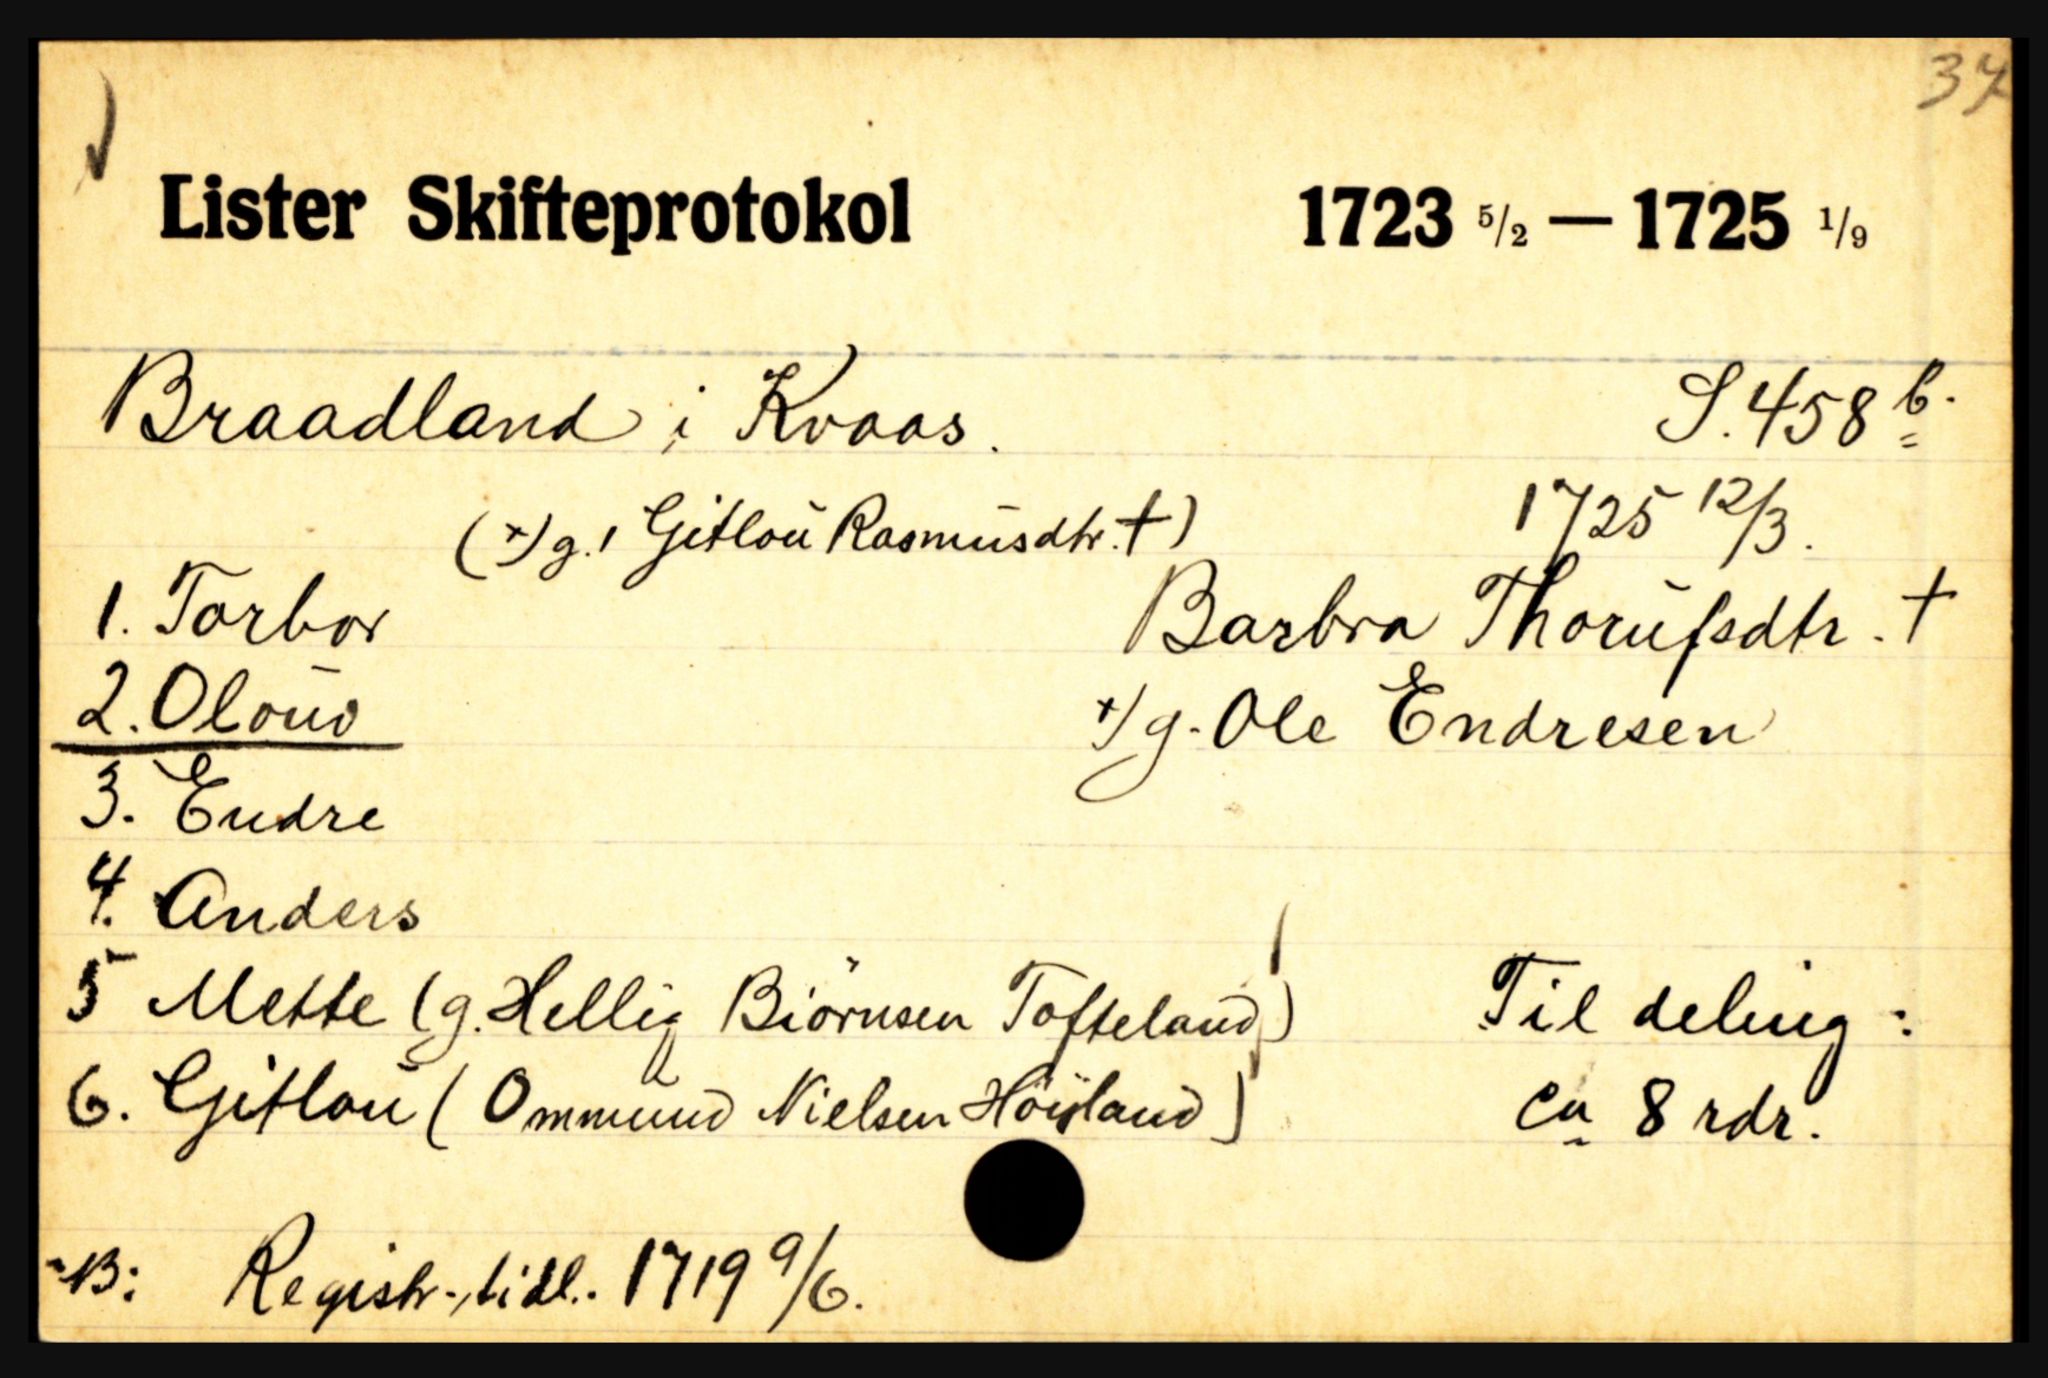 37
Lister Skifteprotokol 1723 5/2 — 1725 1/9
Braadland i Kvaas. S. 458 b.
(+/g. 1 Gitloŭ Rasmŭsdtr. †) 1725 12/3.
1. Torbor Barbra Thorŭfsdtr. †
2. Oloŭv +/g. Ole Endresen
3. Endre
4. Anders
5 Mette (g. Hellig Biörnsen Tofteland) Til deling:
6. Gitloŭ (Ommund Nielsen Höiland) ca 8 rdr.
NB: Registr., tidl. 1719 9/6.